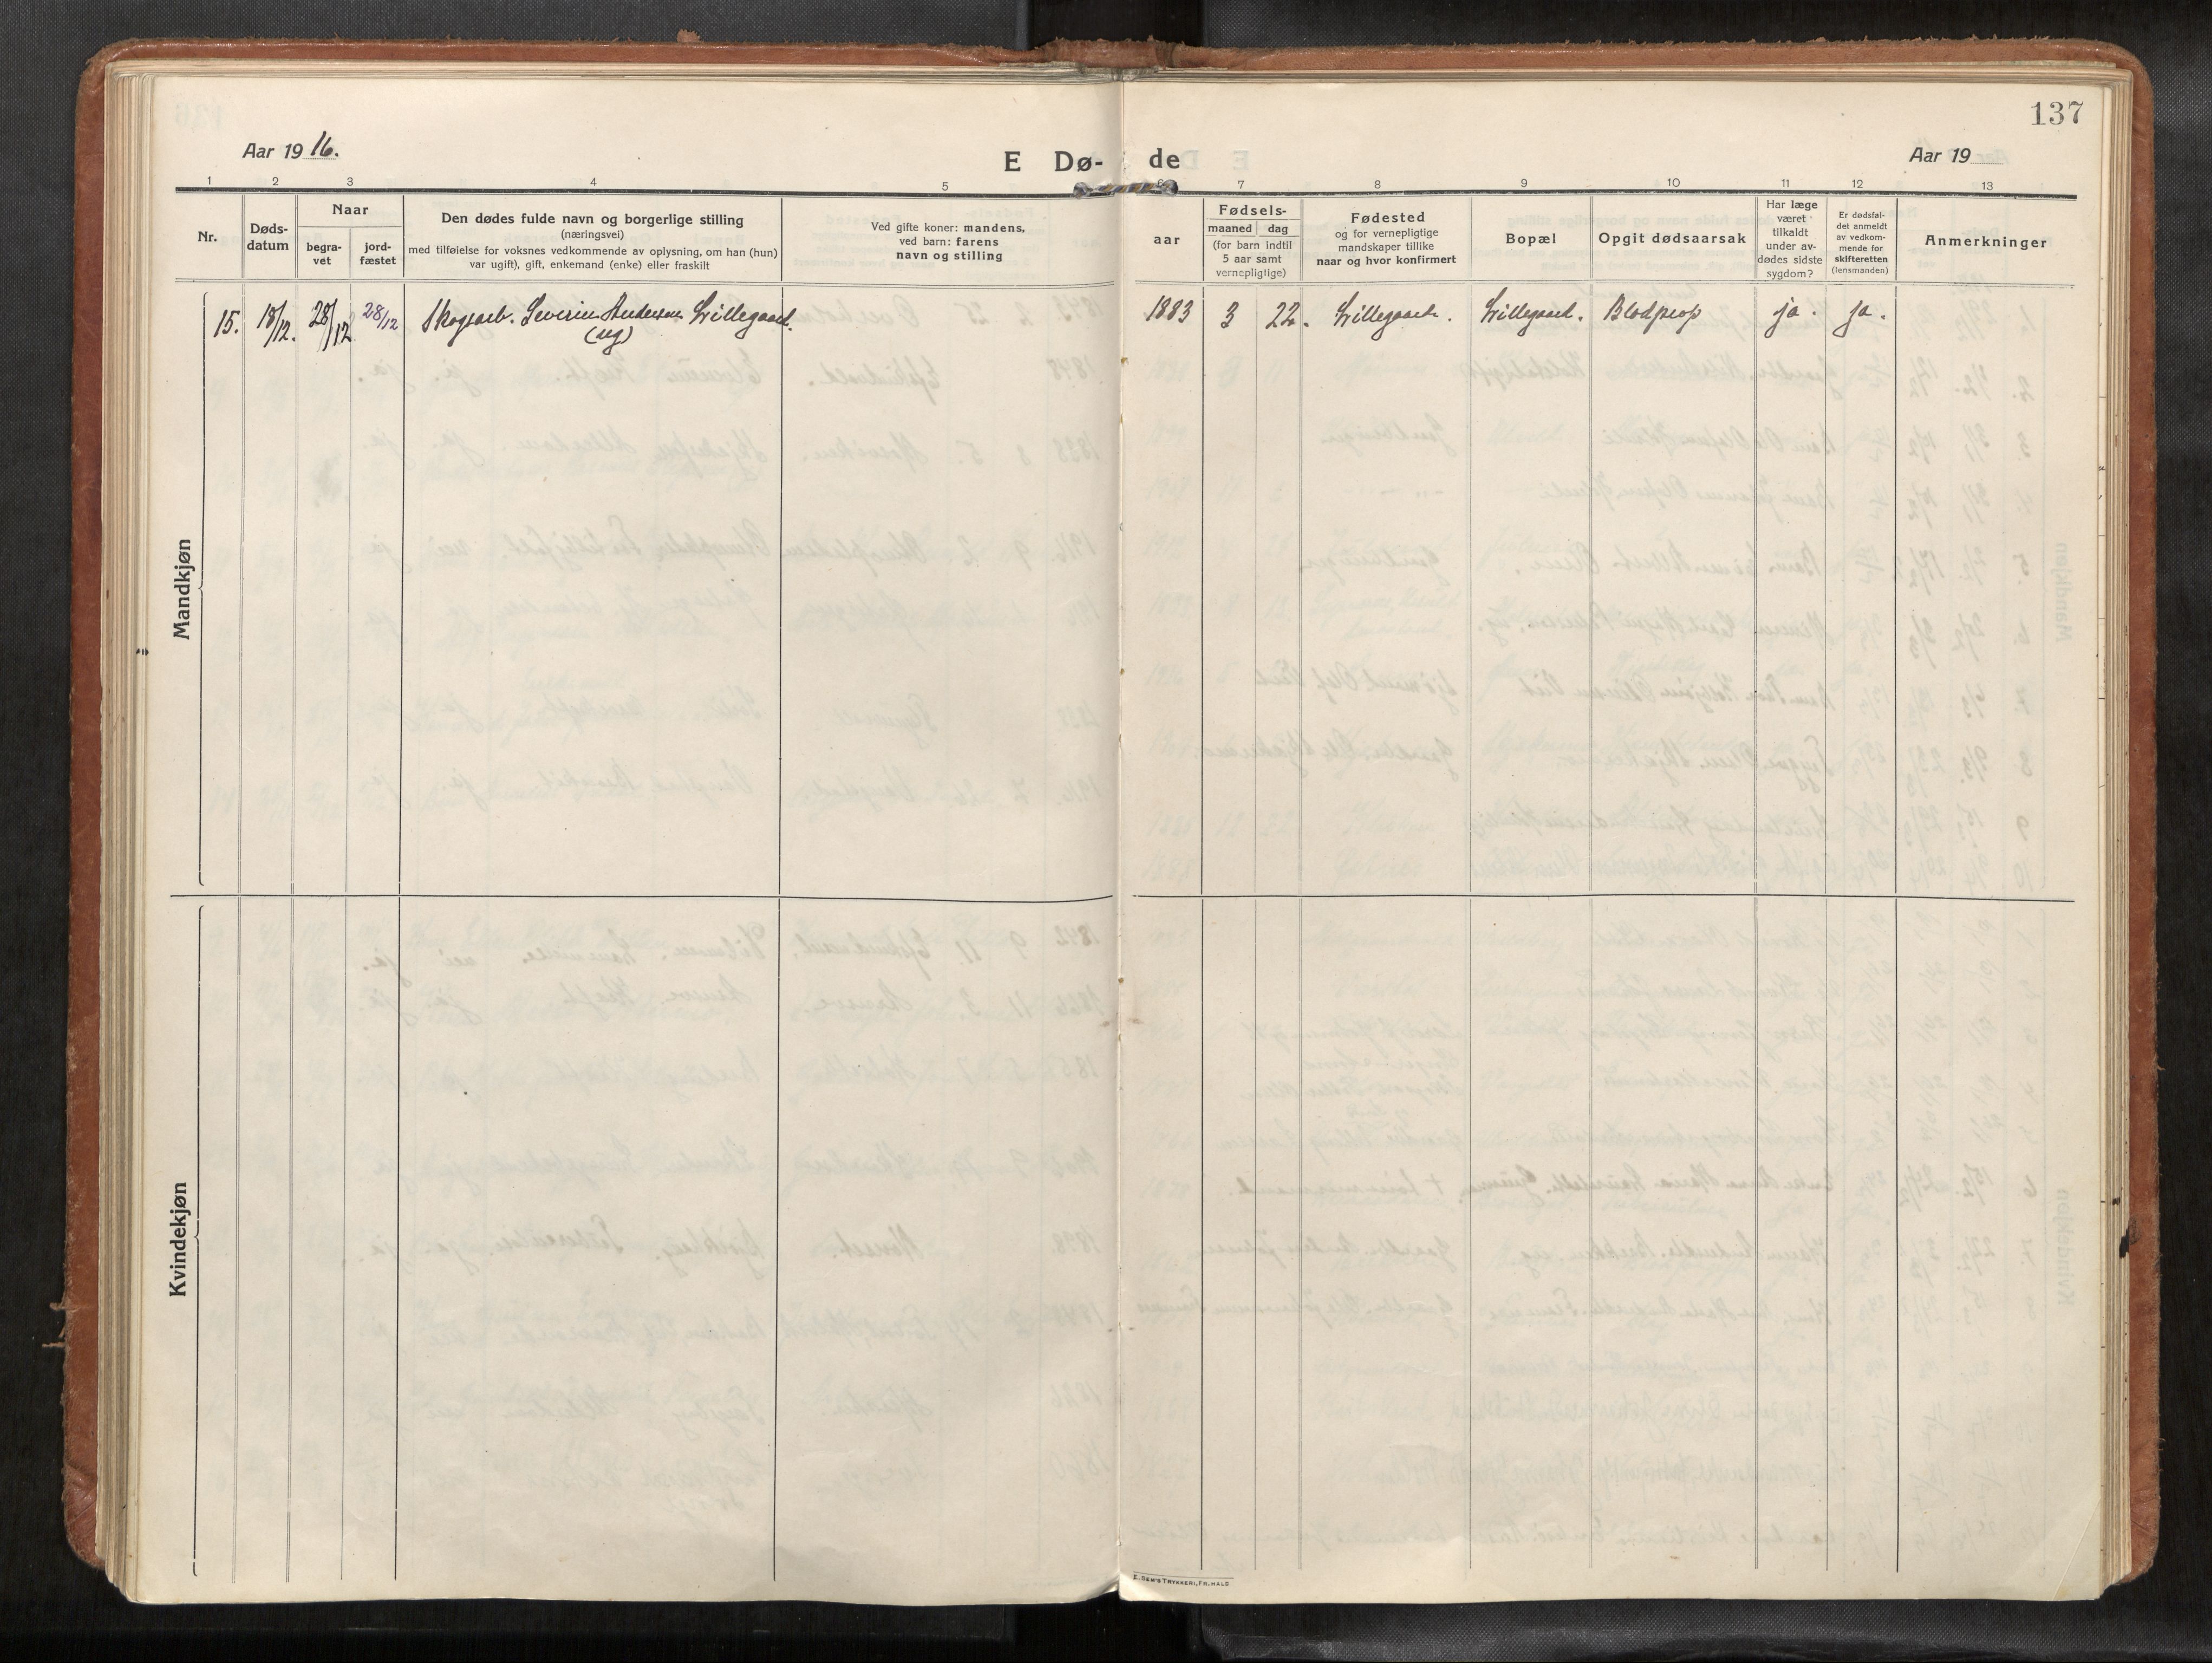 137
Aar 19 16.
E Dø- de
Aar 19
1 2 3 4 5 6 7 8 9 10 11 12 13
Nr.
Døds-
datum
Naar
begra-
vet
jord-
fæstet
Den dødes fulde navn og borgerlige stilling
(næringsvei)
med tilføielse for voksnes vedkommende av oplysning, om han (hun)
var ugift), gift, enkemand (enke) eller fraskilt
Ved gifte koner: mandens,
ved barn: farens
navn og stilling
aar
Fødsels-
maaned dag
(for barn indtil
5 aar samt
vernepligtige)
Fødested
og for vernepligtige
mandskaper tillike
naar og hvor konfirmert
Bopæl
Opgit dødsaarsak
Har læge
været
tilkaldt
under av-
dødes sidste
sygdom?
Er dødsfal-
det anmeldt
av vedkom-
mende for
skifteretten
(lensmanden)
Anmerkninger
15. 18/12. 28/12 28/12 Skogsarb. Severin Andersen Lillegaard. 1883 3 22. Lillegaard. Lillegaard. Blodprop ja. ja.
(ug)
Mandkjøn
Kvindekjøn
E. SEM'S TRYKKERI, FR.HALD